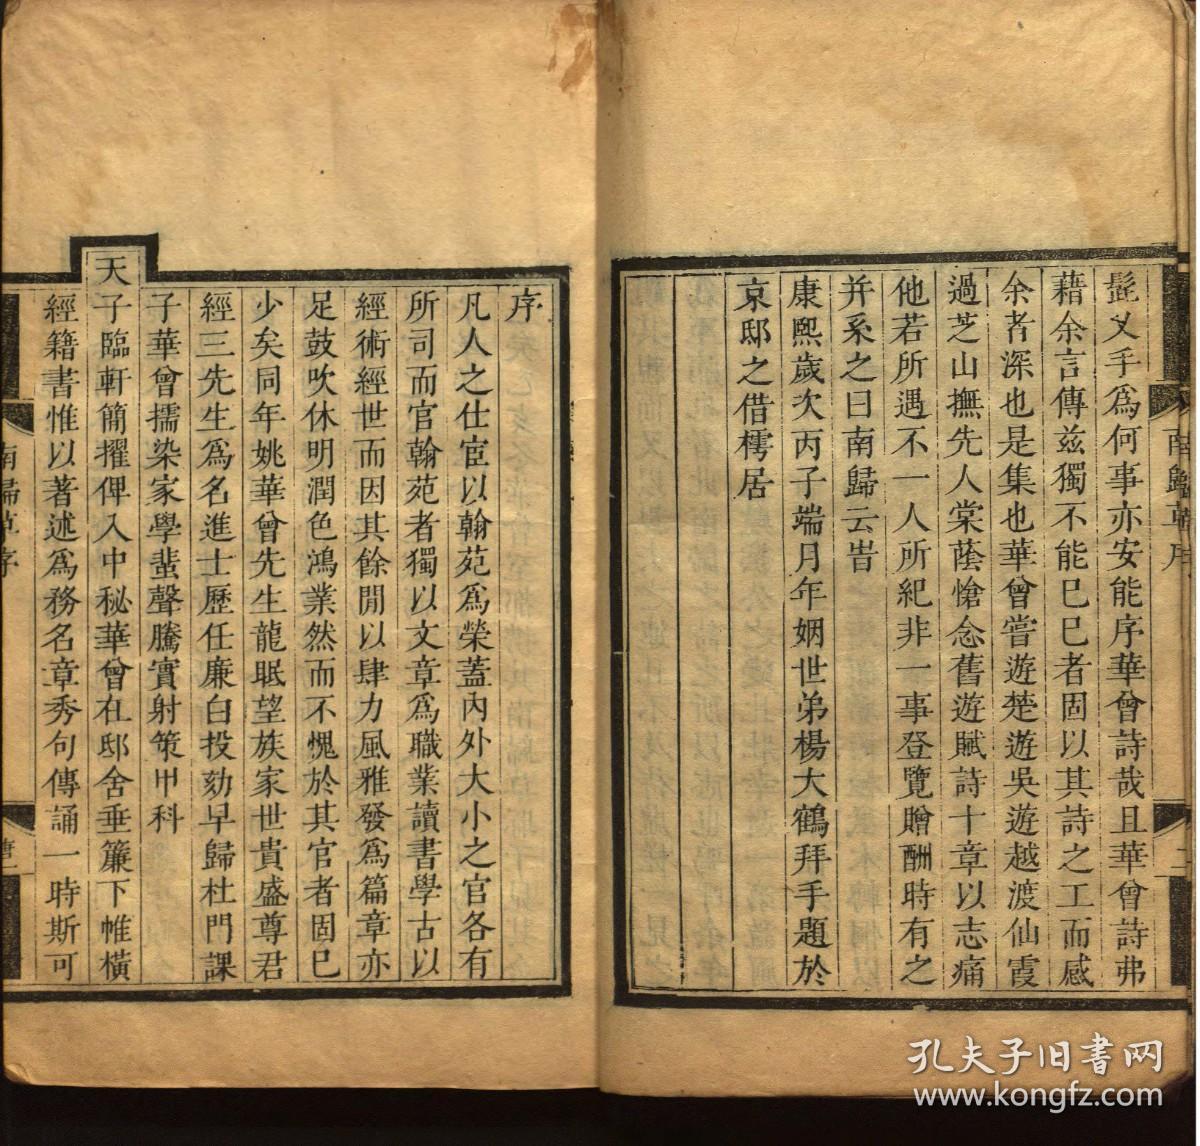 髭乂手為何事亦安能序華曾詩哉且華曾詩弗
藉余言傳茲獨不能已已者固以其詩之工而感
余者深也是集也華曾嘗遊楚遊吳遊越渡仙霞
過芝山撫先人棠蔭愴念舊遊賦詩十章以志痛
他若所遇不一人所紀非一事登覽贈酬時有之
并系之曰南歸云旹
康熙歲次丙子端月年姻世弟楊大鶴拜手題於
京邸之借樗居
南歸草序
二
序
凡人之仕宦以翰苑為榮蓋內外大小之官各有
所司而官翰苑者獨以文章為職業讀書學古以
經術經世而因其餘閒以肆力風雅發為篇章亦
足鼓吹休明潤色鴻業然而不愧於其官者固已
少矣同年姚華曾先生龍眠望族家世貴盛尊君
經三先生為名進士歷任廉白投劾早歸杜門課
子華曾擩染家學蜚聲騰實射策甲科
天子臨軒簡擢俾入中秘華曾在邸舍垂簾下帷橫
經籍書惟以著述為務名章秀句傳誦一時斯可
南歸草序
孔夫子旧书网
www.kongfz.com